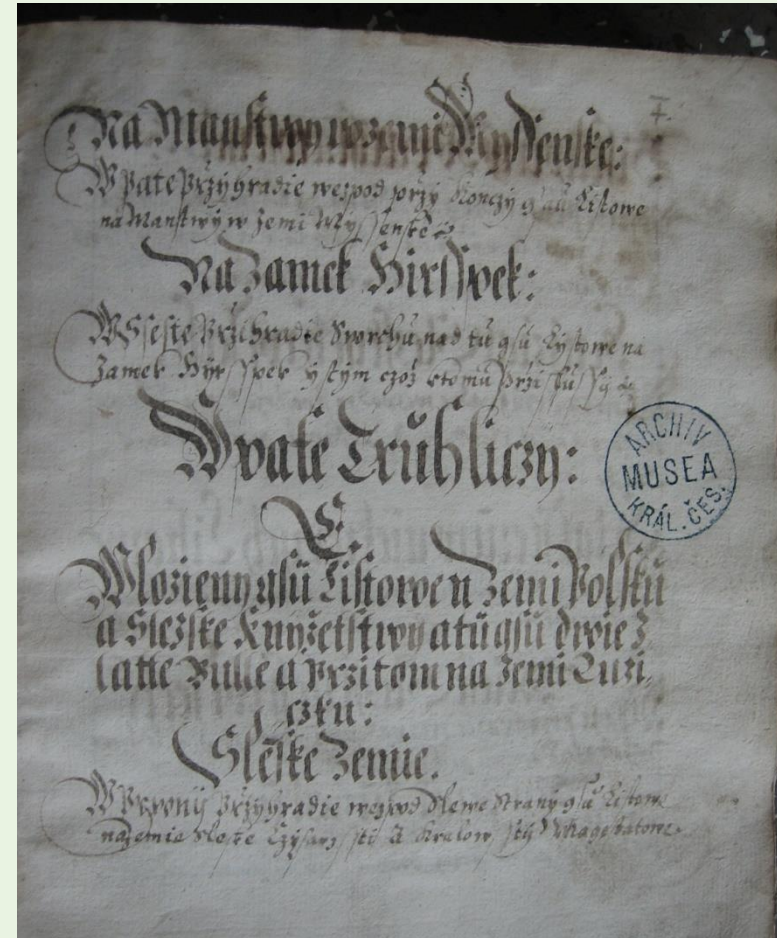 Na Manstwy w zemi Myssenske:
W pate przyhradie wespod przy konczy gsau Listowe
na Manstwy w zemi Myssenske
Na Zamek Hirsspek:
W Sseste Przihradie Swrchu nad tu gsu Lystowe na
Zamek Hyrsspek y s tym czoz ktomu przislussy
W pate Truhliczy:
E.
Wlozieny gsu Listowe n zemi Polsku
a Slezske Knyzetstwy a tu gsu dwie z
latte Bulle a przitom na zemi Luzi,
czku:
Sleske zemie.
W Prwony przyhradie wespod Slewe Strany gsu Listowe
na zemie Slezske
ARCHIV
MUSEA
KRÁL. ČES.